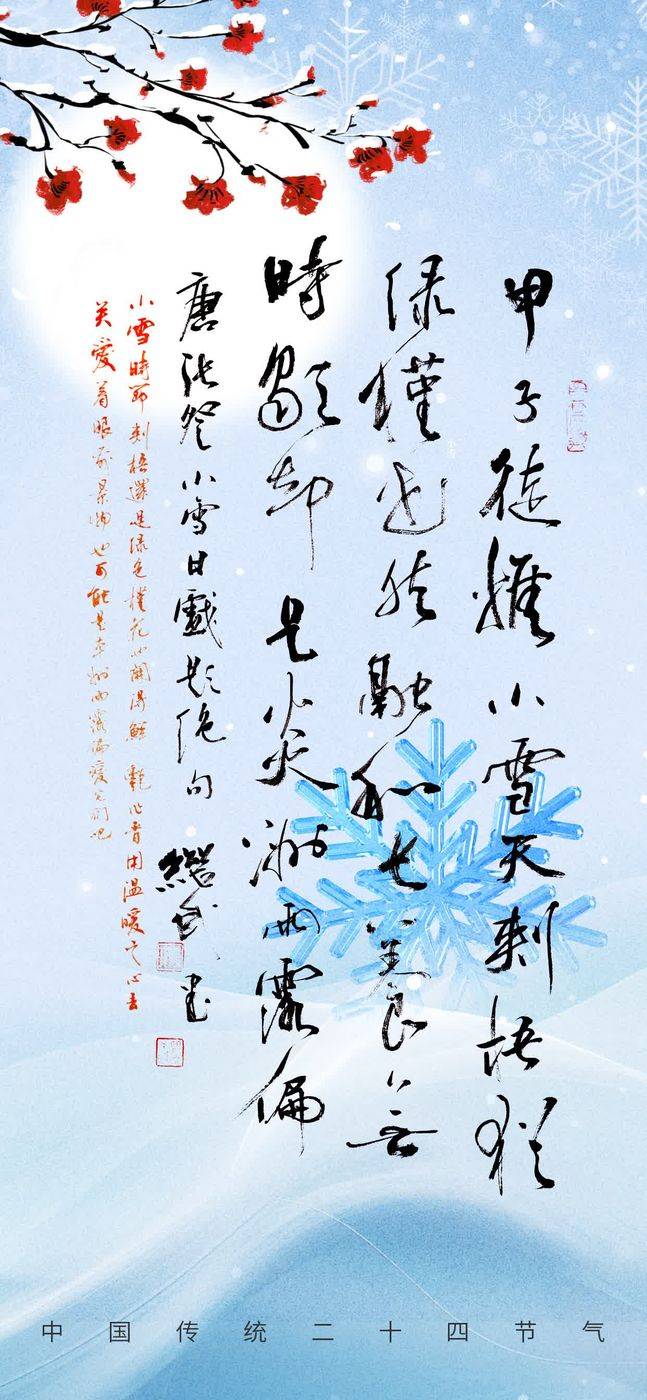 甲子徒推小雪天刺梧犹
绿槿花然融和长养无
時歇却是炎洲雨露偏
唐张登小雪日戲题绝句 书
小雪時節刺梧還是绿色槿花也開得鲜艷 用温暖之心去
关爱着眼前景物也可能是炎洲雨露偏爱它们吧
中国传统二十四节气